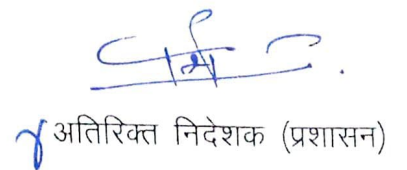 अतिरिक्त निदेशक (प्रशासन)